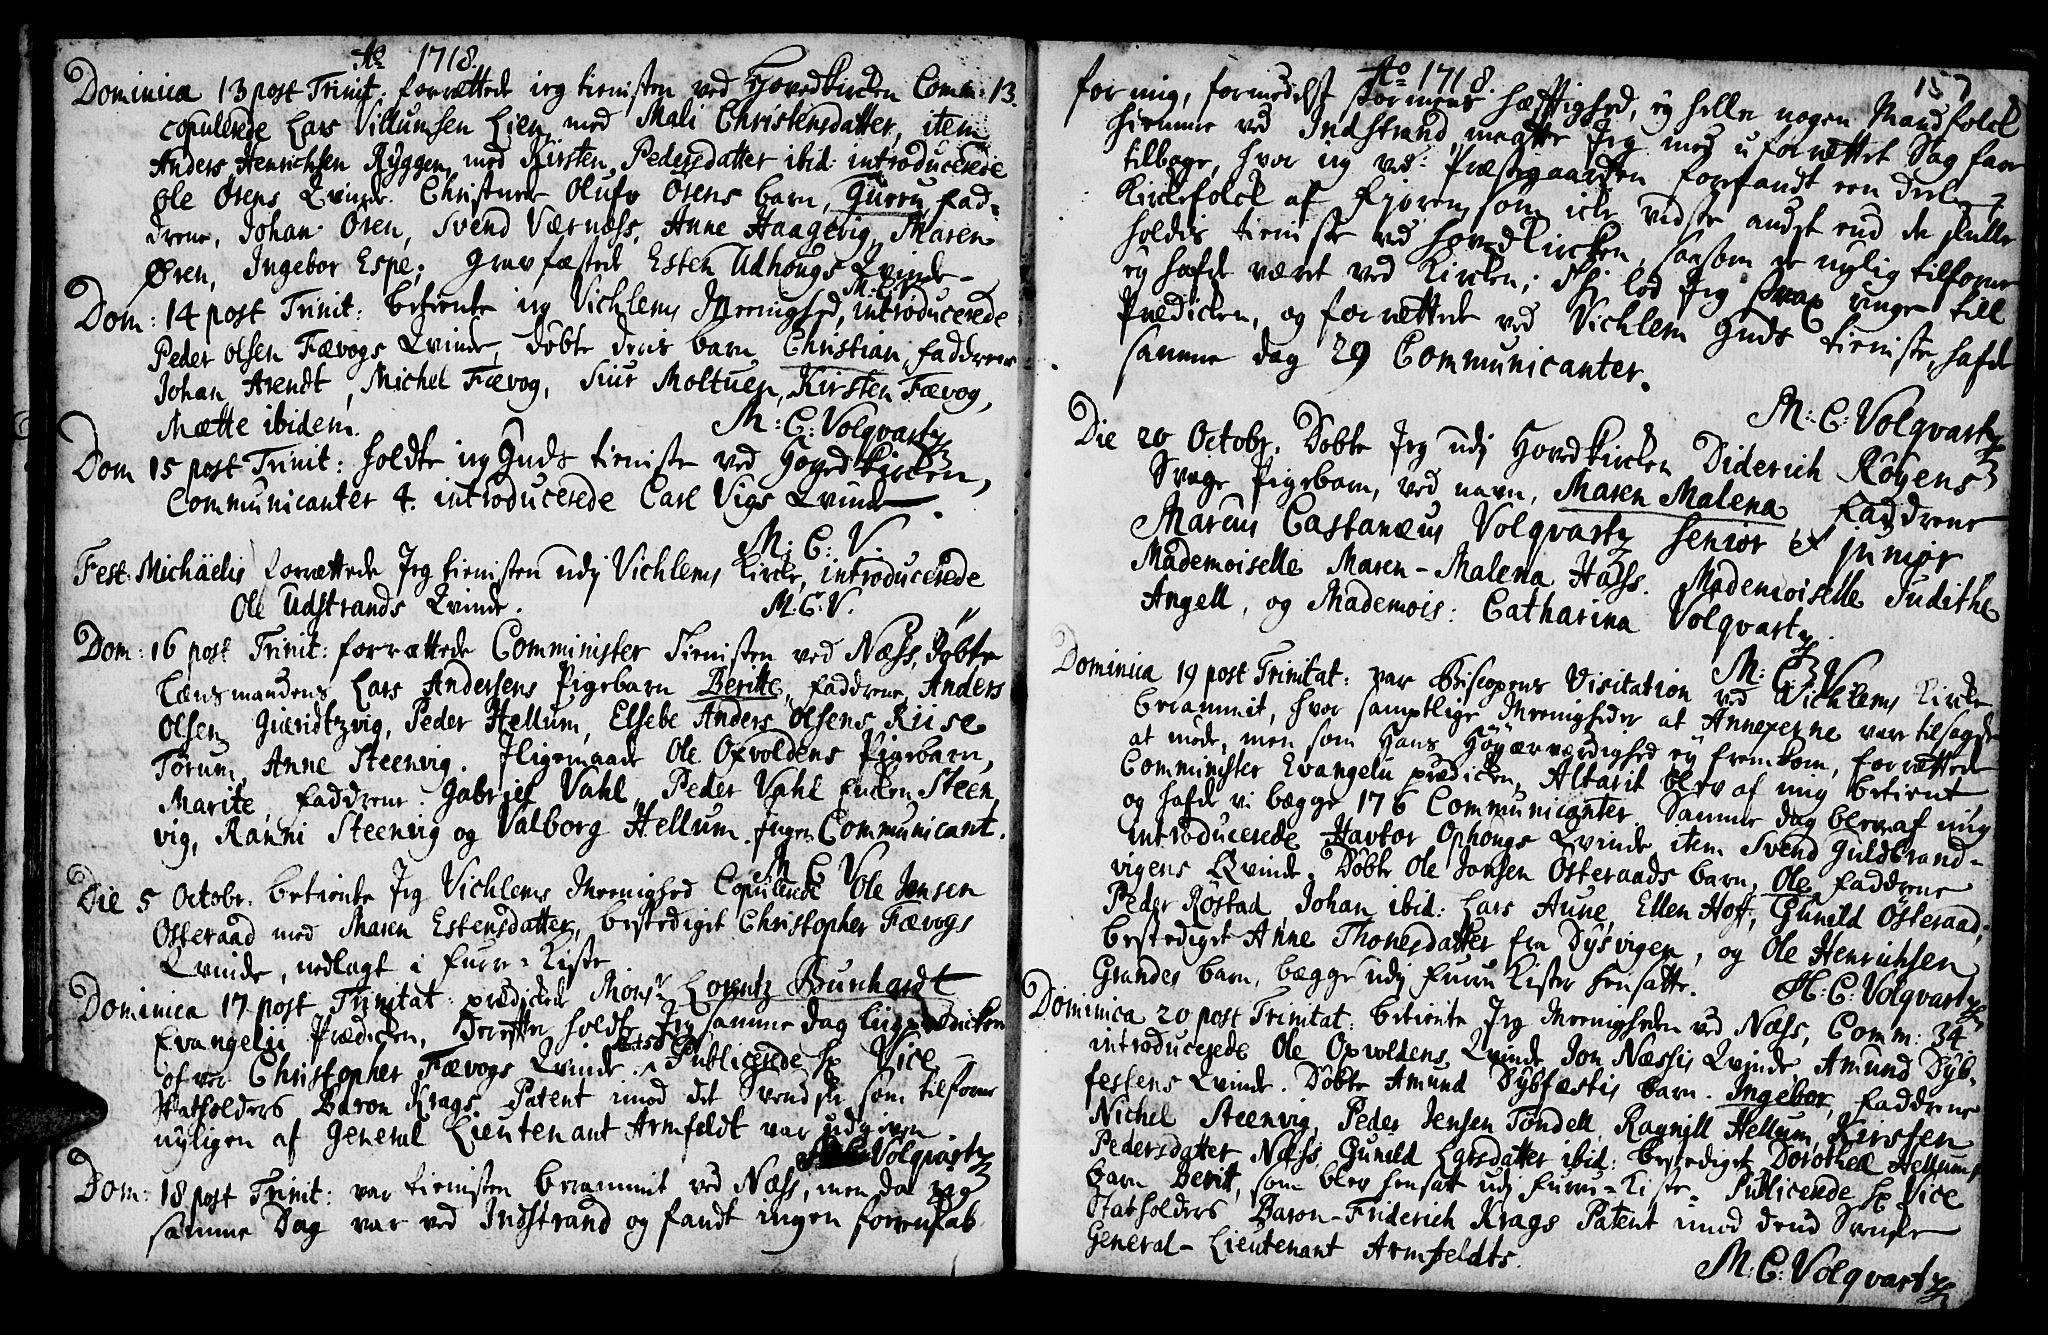 Ao 1718.
Dominica 13 post Trinit: forrættede ieg tienisten ved Hovedkircken Comm: 13.
copulerede Lars Villumsen Lien med Mali Christensdatter, item
Anders Henrichsen Ryggen med Kirsten Pedersdatter ibid: introducerede
Ole Ørens Qvinde. Christnede Olufr Ørens barn, Gurru, Fad-
drene, Johan Øren, Svend Værnæss, Anne Haagevig, Maren
Øren, Ingebor Espe; Gravfæstede Esten Udhougs Qvinde
M: C: V.
Dom: 14 post Trinit: betiente ieg Vichlems Meenighed, introducerede
Peder Olsen Fævogs Qvinde, døbte deris barn Christian, Faddrene
Johan Arendt, Michel Fævog, Siur Moltuen, Kirsten Fævog,
Mætte ibidem.
M: C: Volqvartz
Dom 15 post Trinit: holdte ieg Guds tieniste ved Hovedkircken,
Communicanter 4. introducerede Carl Vigs Qvinde.
M: C: V.
Fest: Michäelis forrættede Jeg tienisten udj Vichlems Kircke, introducerede
Ole Udstrands Qvinde.
M: C: V.
Dom: 16 post Trinit: forrættede Comminister Tienisten ved Næss, Døbte
Lænsmandens Lars Andersens Pigebarn Beritte, Faddrene, Anders
Olsen Guendtzvig, Peder Hellum, Elsebe Anders Olsens Riise
Torum, Anne Steenvig. Jligemaade Ole Opvoldens Pigebarn,
Marite, Faddrene. Gabriel Vahl, Peder Vahl Steen
vig, Ranni Steenvig og Valborg Hellum. Ingen Communicant.
M C V
Die 5 Octobr. betiente Jeg Vichlems Meenighed Copulerede Ole Jensen
Osteraad med Maren Estensdatter, bestediget Christopher Fævogs
Qvinde, nedlagt i furre-Kiste
Dominica 17 post Trinitat: prædickede Monsr Lorentz Burchardt
Evangelii Prædicken, Herefter holdte Jeg samme dag liigprædicken
over Christopher Fævogs Qvinde. Publicerede Hr Vice
Statholders Baron Krags Patent imod det Svendske som tilforne
nyligen af General Lieutenant Armfeldt var udgiven
M: C: Volqvartz
Dom: 18 post Trinit: var tienisten berammit ved Næss, men da ieg
samme Dag var ved Indstrand og fandt ingen forenskab
Ao 1718.
157
for mig, formedelst stormens hæfftighed, ey heller nogen Mandfolck
hiemme ved Indstrand, maatte Jeg med uforrættet Sag fare
tilbage, hvor ieg ved Præstegaarden forfandt een deel
Kirkefolck af Fjoren, som icke vidste andet end de skulle
holdis tieniste ved Hovedkircken, saasom de nylig tilforne
ey hafde været ved Kircken; Thi lod Jeg strax ringe till
Prædicken, og forrættede ved Vichlem Guds tieniste, hafde
samme dag 29 Communicanter.
M: C: Volqvartz
Die 20 Octobr. Døbte Jeg udj Hovedkircken Diderich Röyens
Svage Pigebarn, ved navn, Maren Malena, Faddrene
Marcus Castanæus Volqvartz Senior et junior
Mademoiselle Maren-Malena Hass. Mademoiselle Judithe
Angell, og Mademois: Catharina Volqvartz.
M: C: V
Dominica 19 post Trinitat: var Biscopens Visitation ved Vichlems Kircke
berammit, hvor samptlige Meenigheder at Annexerne vare tilsagde
at møde, men som Hans Höyærværdighed ey fremkom, forrættede
Comminister Evangelii prædicken, Altarit blev af mig betient
og hafde vi begge 176 Communicanter. Samme dag blev af mig
introducerede Havtor Ophougs Qvinde item Svend Guldbrand-
vigens Qvinde. Døbte Ole Jonsen Osteraads barn, Ole, Faddrene
Peder Röstad, Johan ibid: Lars Aune, Ellen Hoff, Gunild Österaad,
bestediget Anne Thonesdatter fra Dysvigen, og Ole Henrichsen
Grandes barn, begge udj Furru Kister hensatte.
M: C: Volqvartz
Dominica 20 post Trinitat: betiente Jeg Meenigheden ved Næss, Comm: 34
introducerede Ole Opvoldens Qvinde, Jon Næssis Qvinde, Amund Dyb-
festens Qvinde. Døbte Amund Dybfæstis barn. Ingebor, Faddrene
Michel Steenvig, Peder Jensen Tondell, Ragnill Hellum, Kirsten
Pedersdatter Næss Gunild Larsdatter ibid: bestediget Dorothea Hellums
barn Berit, som blev hensatt udj furru-Kiste. Publicerede Hr Vice
Statholders Baron-Friderich Krags Patent imod dend Svenske
General-Lieutenant Armfeldts.
M: C: Volqvartz